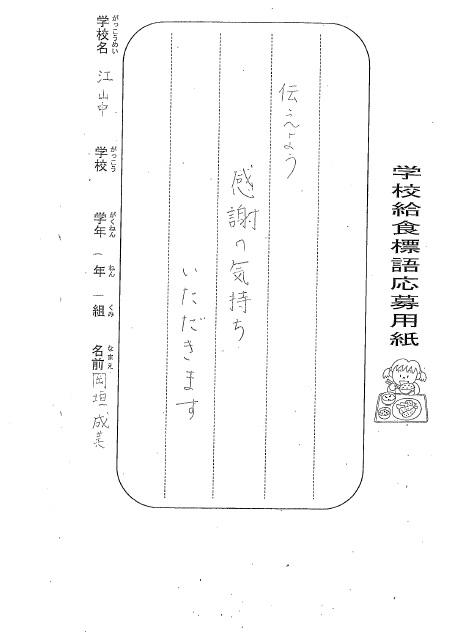 学校給食標語応募用紙
伝えよう
感謝の気持ち
いただきます
学校名 江山中 学校 学年 一年 一組 名前 岡垣成美
がっこうめい がっこう がくねん ねん くみ なまえ